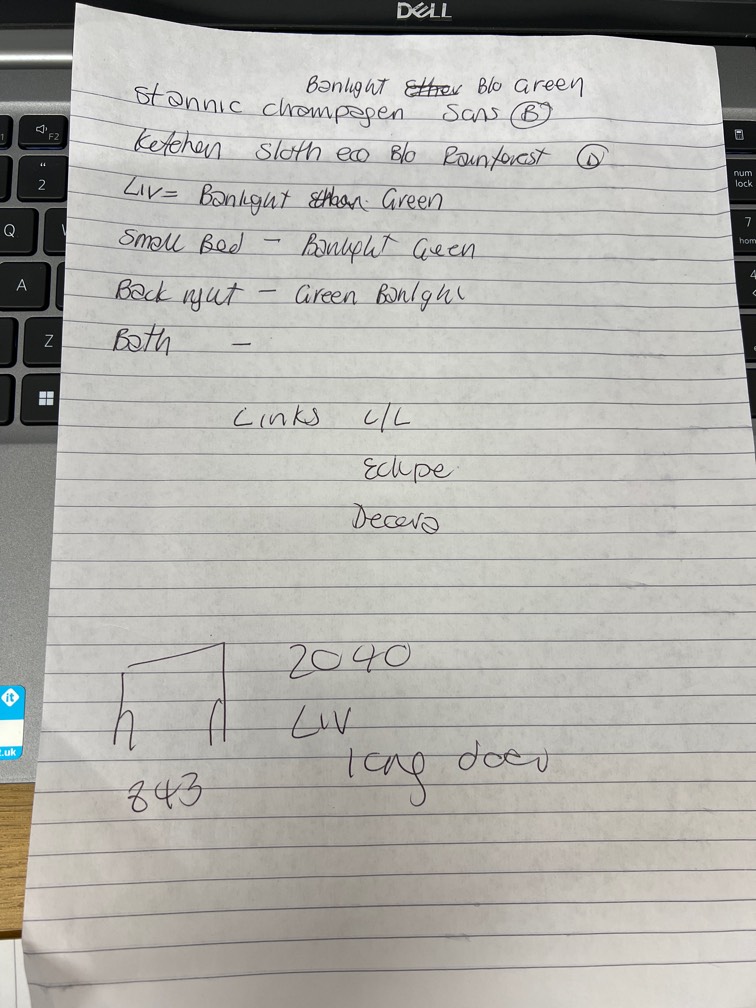 DELL
Banlight Blo Green
Stannic champagen Sans B
Ketchen Sloth eco Blo Rainforest D
Liv = Banlight Green
Small Bed - Banlight Green
Back right - Green Banlight
Bath -
Links L/L
Eclipe
Decera
2040
Liv
long door
843
F2
"
2
Q
A
Z
num
lock
7
hom
4
it
.uk